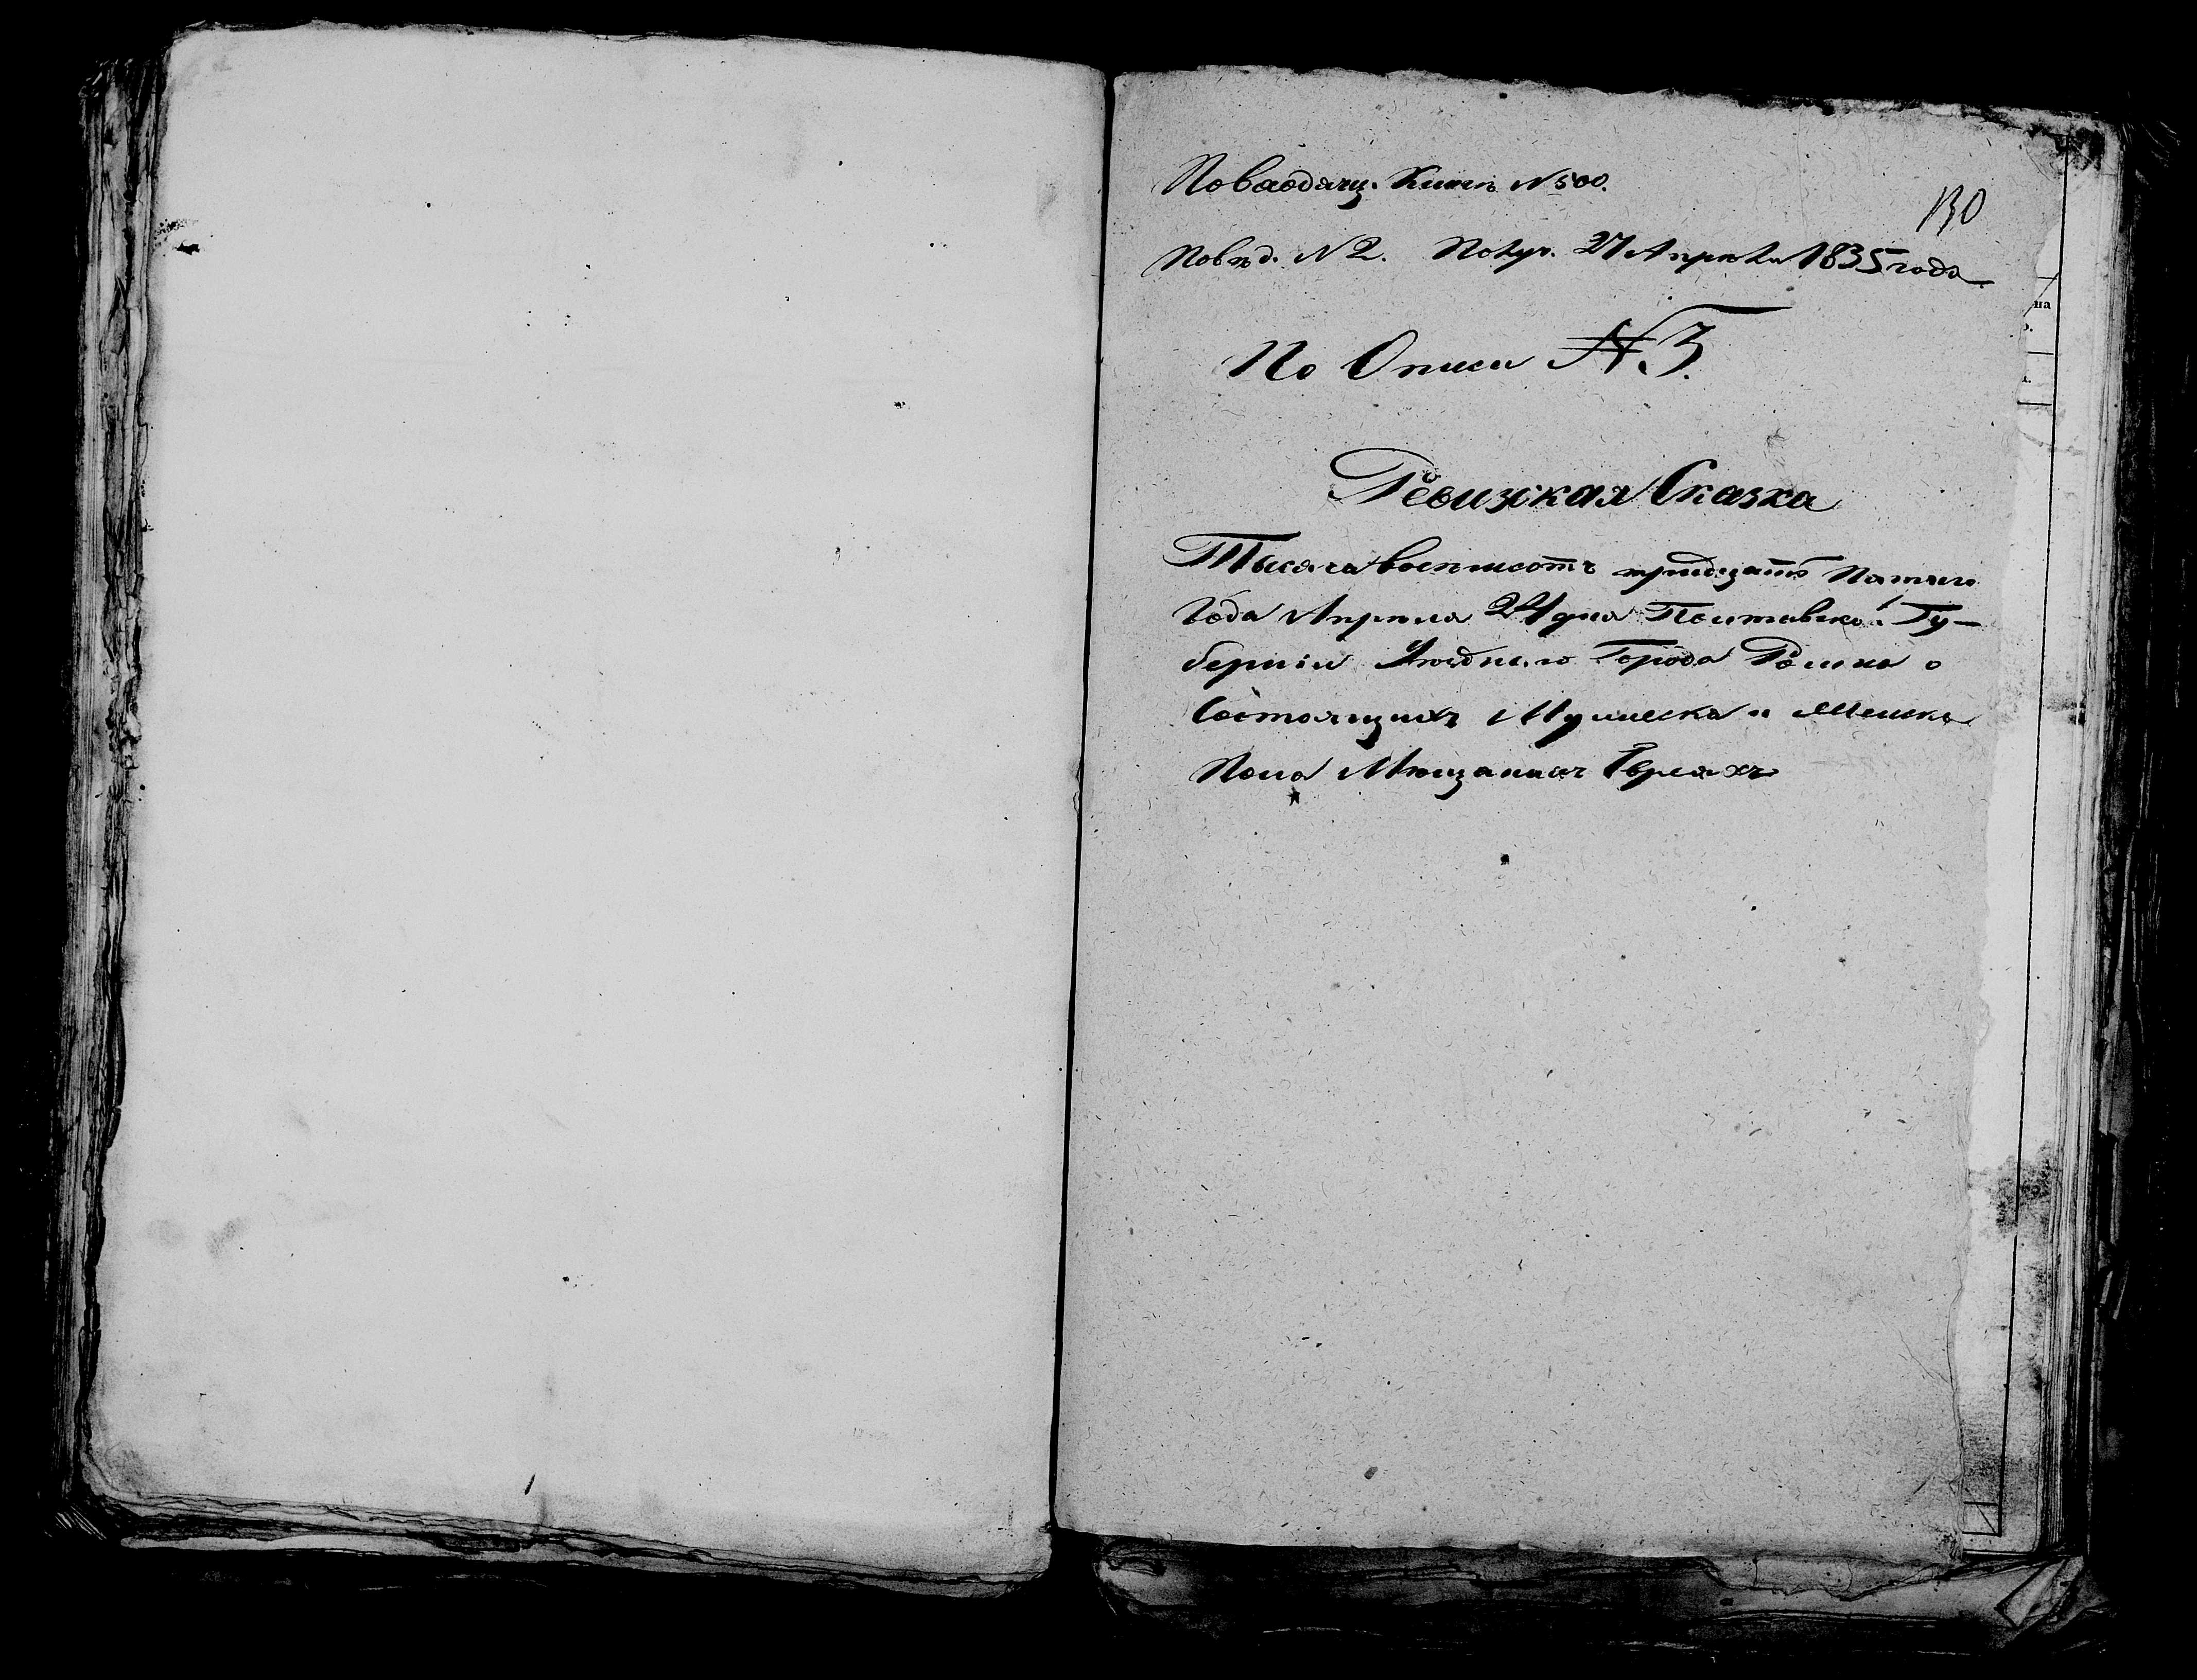 По входящ. Книгѣ N 500.
130
По вѣд. N 2. Получ. 27 Апрѣля 1835 года
По Описи N 3.
Ревизкая Сказка
Тысяча восемьсотъ тридцать Пятаго
Года Апрѣля 24 дня Полтавской Гу-
берніи Уѣзднаго Города Ромна о
Состоящихъ Мужеска и Женска
Пола Мѣщанахъ Евреяхъ
на